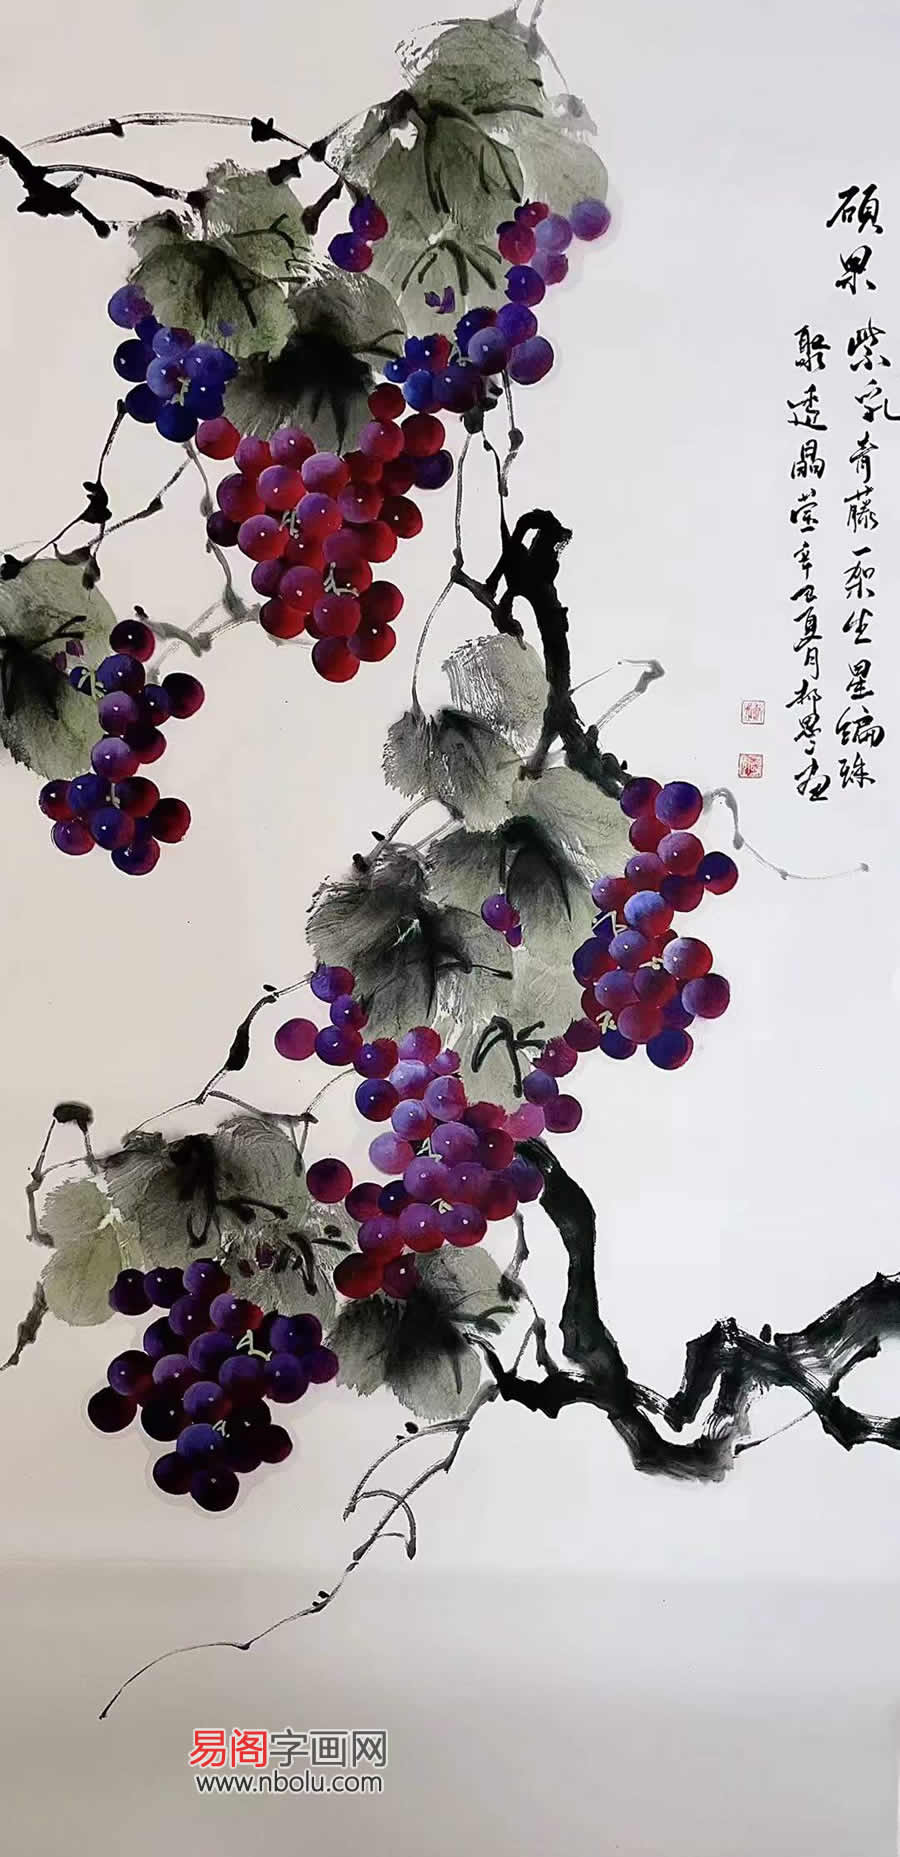 硕果
紫乳青藤一架生星编珠
聚透晶莹辛丑夏月郝恩
易阁字画网
www.nbolu.com